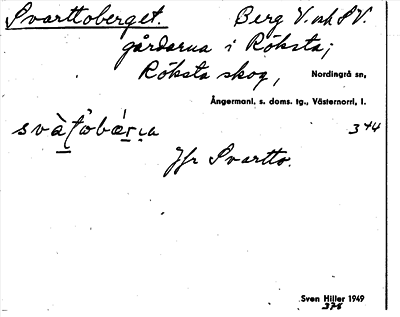 Svarttoberget. Berg V. och SV.
gårdarna i Röksta;
Röksta skog, Nordingrå sn,
Ångermanl. s. doms. tg., Västernorrl. l.
344
Jfr Svartto.
Sven Hiller 1949
378